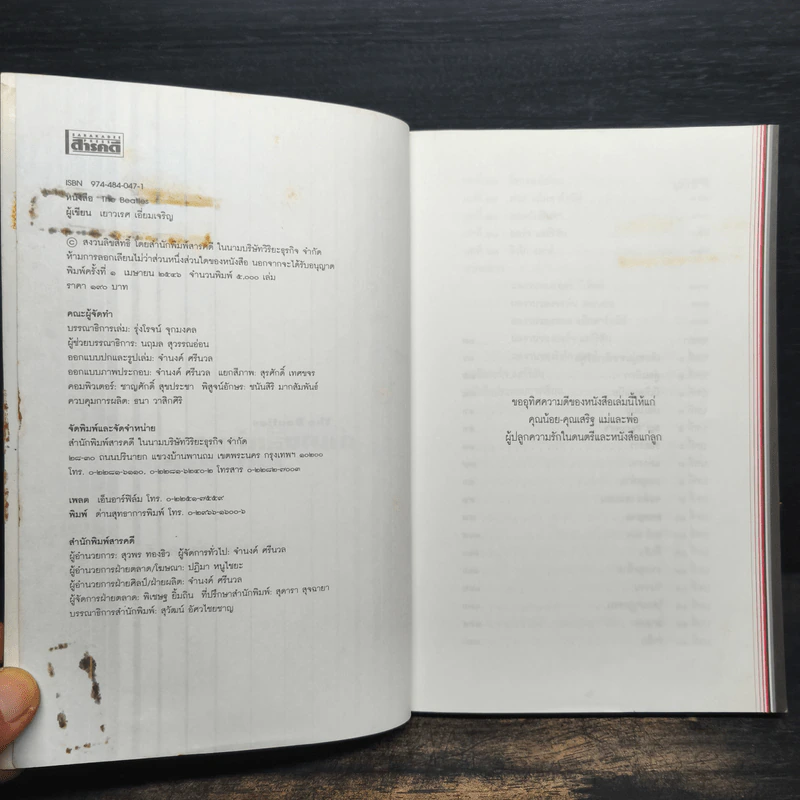 SARAKADEE
PRESS
สารคดี
ISBN 974-484-047-1
หนังสือ The Beatles
ผู้เขียน เยาวเรศ เอี่ยมเจริญ
© สงวนลิขสิทธิ์ โดยสำนักพิมพ์สารคดี ในนามบริษัทวิริยะธุรกิจ จำกัด
ห้ามการลอกเลียนไม่ว่าส่วนหนึ่งส่วนใดของหนังสือ นอกจากจะได้รับอนุญาต
พิมพ์ครั้งที่ ๑ เมษายน ๒๕๔๖ จำนวนพิมพ์ ๕,๐๐๐ เล่ม
ราคา ๑๙๐ บาท
คณะผู้จัดทำ
บรรณาธิการเล่ม: รุ่งโรจน์ จุกมงคล
ผู้ช่วยบรรณาธิการ: นฤมล สุวรรณอ่อน
ออกแบบปกและรูปเล่ม: จำนงค์ ศรีนวล
ออกแบบภาพประกอบ: จำนงค์ ศรีนวล แยกสีภาพ: สุรศักดิ์ เทศขจร
คอมพิวเตอร์: ชาญศักดิ์ สุขประชา พิสูจน์อักษร: ชนันสิริ มากสัมพันธ์
ควบคุมการผลิต: ธนา วาสิกศิริ
จัดพิมพ์และจัดจำหน่าย
สำนักพิมพ์สารคดี ในนามบริษัทวิริยะธุรกิจ จำกัด
๒๘-๓๐ ถนนปรินายก แขวงบ้านพานถม เขตพระนคร กรุงเทพฯ ๑๐๒๐๐
โทร. ๐-๒๒๘๑-๖๑๑๐, ๐-๒๒๘๑-๖๒๔๐-๒ โทรสาร ๐-๒๒๘๒-๗๐๐๓
เพลต เอ็นอาร์ฟิล์ม โทร. ๐-๒๒๕๑-๗๕๕๙
พิมพ์ ด่านสุทธาการพิมพ์ โทร. ๐-๒๙๖๖-๑๖๐๐-๖
สำนักพิมพ์สารคดี
ผู้อำนวยการ: สุวพร ทองธิว ผู้จัดการทั่วไป: จำนงค์ ศรีนวล
ผู้อำนวยการฝ่ายตลาด/โฆษณา: ปฏิมา หนูไชยะ
ผู้อำนวยการฝ่ายศิลป์/ฝ่ายผลิต: จำนงค์ ศรีนวล
ผู้จัดการฝ่ายตลาด: พิเชษฐ ยิ้มถิน ที่ปรึกษาสำนักพิมพ์: สุดารา สุจฉายา
บรรณาธิการสำนักพิมพ์: สุวัฒน์ อัศวไชยชาญ
ขออุทิศความดีของหนังสือเล่มนี้ให้แก่
คุณน้อย-คุณเสริฐ แม่และพ่อ
ผู้ปลูกความรักในดนตรีและหนังสือแก่ลูก